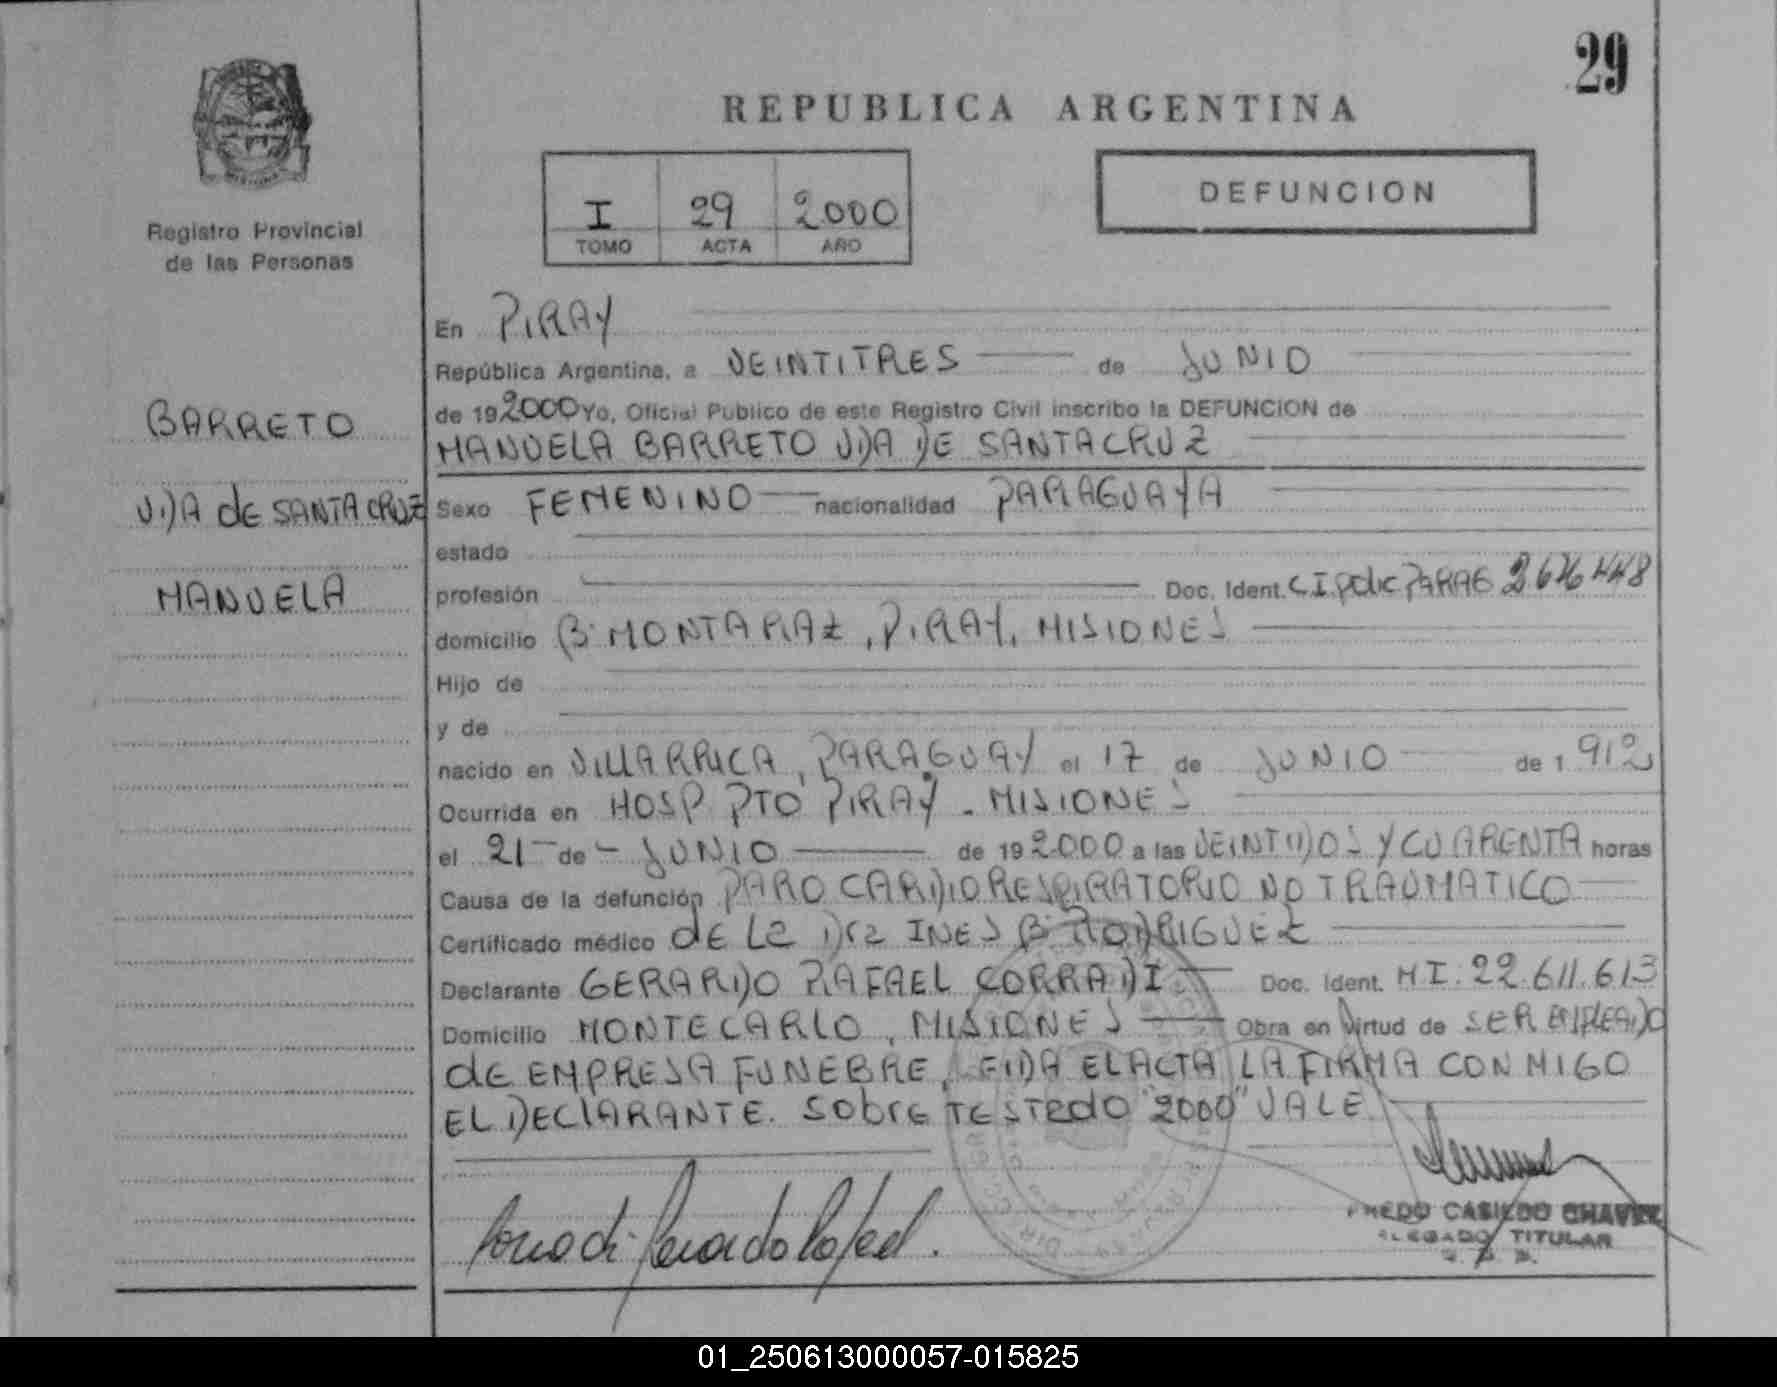 29
REPUBLICA ARGENTINA
DEFUNCION
I 29 2000
TOMO ACTA AÑO
Registro Provincial
de las Personas
BARRETO
VDA de SANTACRUZ
MANUELA
En PIRAY
República Argentina, a VEINTITRES de JUNIO
de 192000 Yo, Oficial Publico de este Registro Civil inscribo la DEFUNCION de
MANUELA BARRETO VDA DE SANTACRUZ
Sexo FEMENINO nacionalidad PARAGUAYA
estado
profesión Doc. Ident. C I polic PARAG 2.626448
domicilio B: MONTARAZ, PIRAY, MISIONES
Hijo de
y de
nacido en VILLARRICA, PARAGUAY el 17 de JUNIO de 1 912
Ocurrida en HOSP PTO PIRAY - MISIONES
el 21 de JUNIO de 19 2000 a las VEINTIDOS Y CUARENTA horas
Causa de la defunción PARO CARDIORESPIRATORIO NO TRAUMATICO
Certificado médico de la Dra INES B. RODRIGUEZ
Declarante GERARDO RAFAEL CORRADI Doc. Ident. M I: 22.611.613
Domicilio MONTECARLO, MISIONES Obra en virtud de SER EMPLEADO
de EMPRESA FUNEBRE, LEIDA EL ACTA LA FIRMA CON MIGO
EL DECLARANTE. Sobre TESTADO "2000" VALE
Corradi Gerardo Rafael.
CASILDO CHAVEZ
DELEGADO TITULAR
01_250613000057-015825